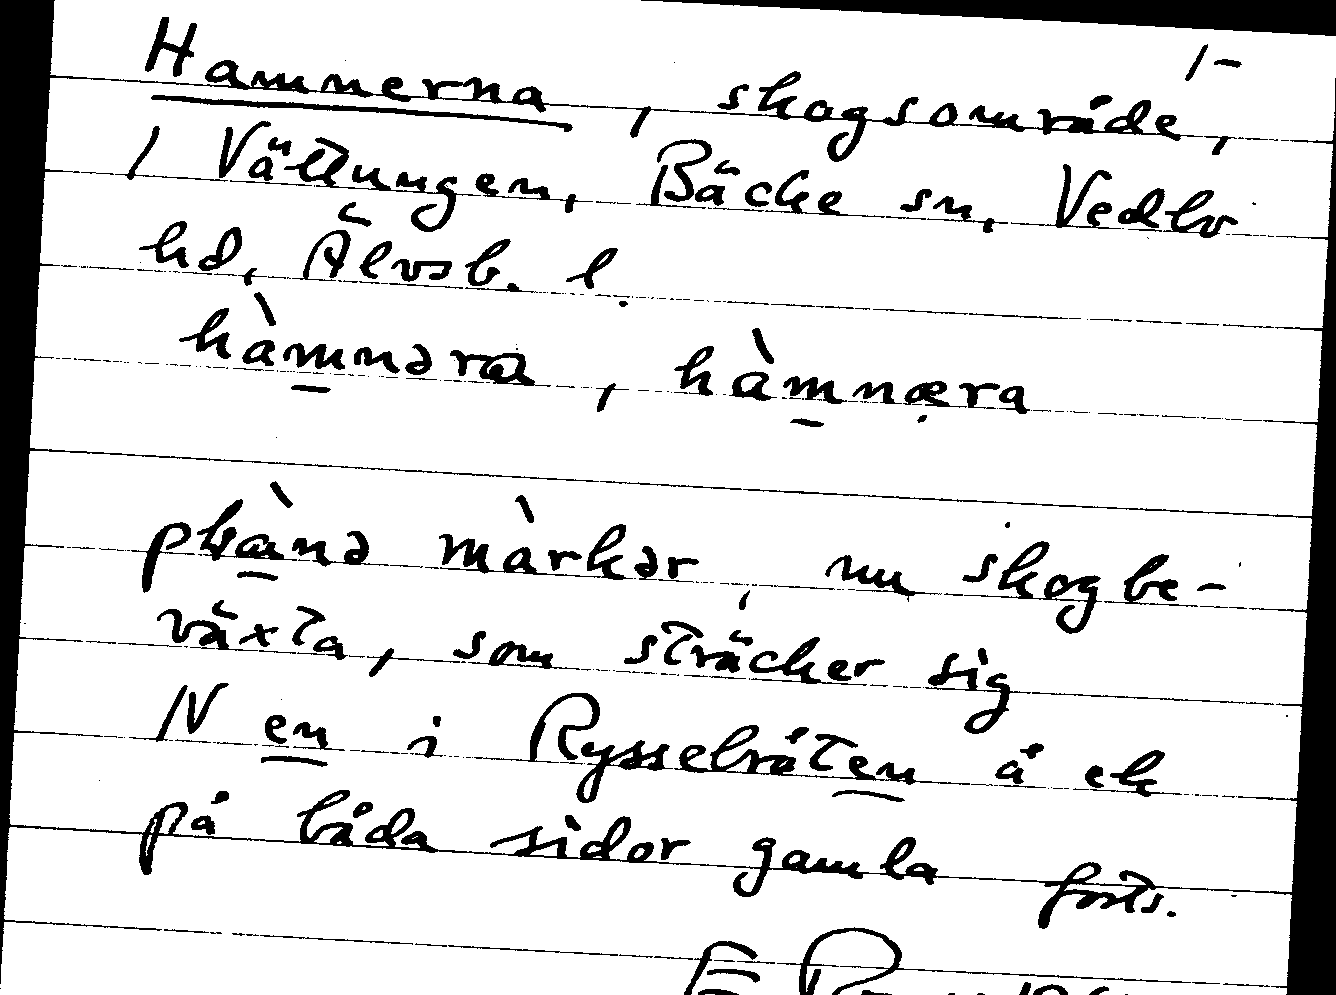 1-
Hamnerna, skogsområde,
1 Vättungen, Bäcke sn, Vedbo
hd, Älvsb. l.
hàmnəra, hàmnæra
plànə màrkər, nu skogbe-
växta, som sträcker sig
N en i Rysselråten å ek
på båda sidor gamla forts.